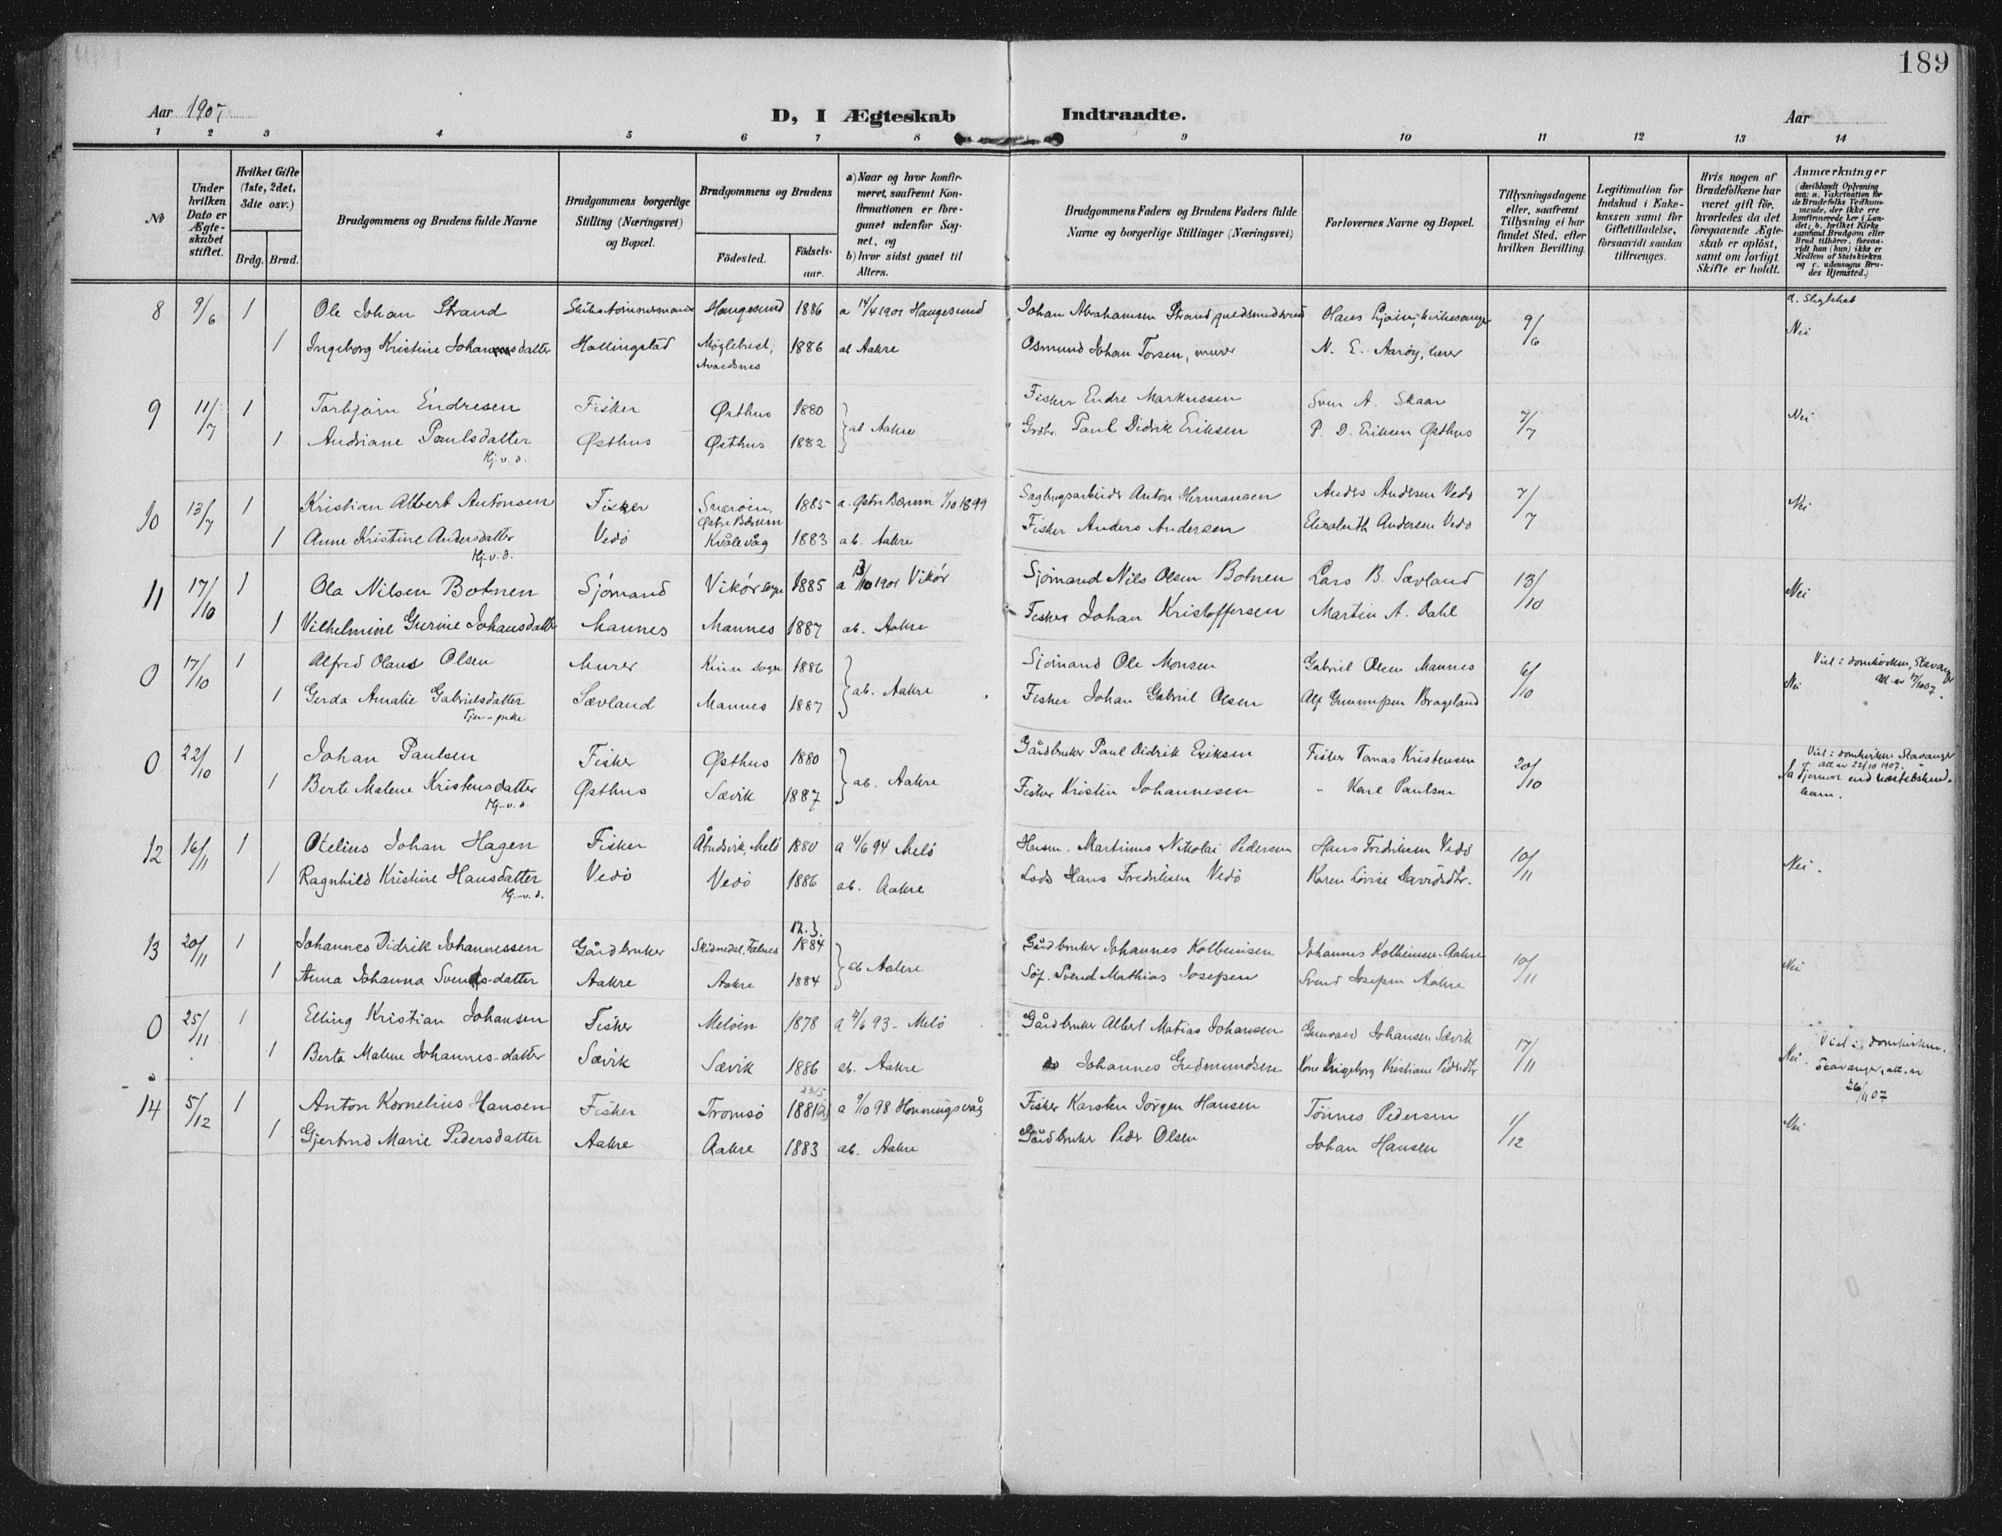 189
Aar 1907 D, I Ægteskab Indtraadte. Aar
1 2 3 4 5 6 7 8 9 10 11 12 13 14
No
Under hvilken Dato er Ægte-skabet stiftet.
Hvilket Gifte (1ste, 2det, 3die osv.)
Brdg. Brud.
Brudgommens og Brudens fulde Navne
Brudgommens borgerlige Stilling (Næringsvei) og Bopæl.
Brudgommens og Brudens
Fødested. Fødsels-aar.
a) Naar og hvor konfir-meret, saafremt Kon-firmationen er fore-gaaet udenfor Sog-net, og
b) hvor sidst gaaet til Alters.
Brudgommens Faders og Brudens Faders fulde Navne og borgerlige Stillinger (Næringsvei)
Forlovernes Navne og Bopæl.
Tillysningsdagene eller, saafremt Tillysning ei har fundet Sted, efter hvilken Bevilling.
Legitimation for Indskud i Enke-kassen samt for Giftetilladelse, forsaavidt saadan tiltrænges.
Hvis nogen af Brudefolkene har været gift før, hvorledes da det foregaaende Ægte-skab er opløst, samt om lovligt Skifte er holdt.
Anmærkninger
8 9/6 1 Ole Johan Strand Haugesund 1886 a 14/4 1901 Haugesund Johan Abrahamsen Strand 9/6 a. Slegtskab
1 Ingeborg Kristine Johannsdatter Hallingstad Avaldsnes 1886 ab Aakre Osmund Johan Torsen, murer N. E. Aarøy, lærer Nei
9 11/7 1 Torbjørn Endresen Fisker Østhus 1880 ab Aakre Fisker Endre Markussen Sven A. Skaar 7/7 Nei
1 Andriane Paulsdatter Østhus Østhus 1882 Grdbr. Paul Didrik Eriksen P. D. Eriksen Østhus
Hj.v.d.
10 13/7 1 Kristian Albert Antonsen Fisker Snarøen, Østre Bærum 1885 a. Østre Bærum 1/10 1899 Sagbrugsarbeider Anton Hermansen Anders Andersen Vedø 7/7 Nei
1 Anne Kristine Andersdatter Vedø Kvålevåg 1883 ab. Aakre Fisker Anders Andersen Elisabeth Andersen Vedø
Hj.v.d.
11 17/10 1 Ola Nilsen Botnen Sjømand Vikør sogn 1885 a 13/10 1901 Vikør Sjømand Nils Olsen Botnen Lars B. Sævland 13/10 Nei
1 Vilhelmine Gurine Johansdatter Mannes Mannes 1887 ab. Aakre Fisker Johan Kristoffersen Martin A. Dahl
0 17/10 1 Alfred Olaus Olsen Murer Kinn sogn 1886 ab. Aakre Sjømand Ole Monsen Gabriel Olsen Mannes 6/10 Viel i domkirken, Stavanger Att. av 17/10 07.
1 Gerda Amalie Gabrielsdatter Sævland Mannes 1887 Fisker Johan Gabriel Olsen Nei
0 22/10 1 Johan Paulsen Fisker Østhus 1880 ab. Aakre Gårdbruker Paul Didrik Eriksen Fisker Tomas Kristensen 20/10 Viel i domkirken Stavanger att av 22/10 1907.
1 Berte Malene Kristensdatter Østhus Sævik 1887 Fisker Kristen Johannesen " Karl Paulsen Ja fjernere end næstsøskende-barn.
Hj.v.d.
12 16/11 1 Otelius Johan Hagen Fisker Meló 1880 a 4/6 94 Meló Martinus Nikolai Pedersen Hans Fredriksen Vedø 10/11 Nei.
1 Ragnhild Kristine Hansdatter Vedø Vedø 1886 ab. Aakre Lods Hans Fredriksen Vedø Karen Lovise Davidsdtr.
Hj.v.d.
12.3.
13 20/11 1 Johannes Didrik Johannessen Gårdbruker 1884 ab Aakre Gårdbruker Johannes Kolbeinsen Johannes Kolbeinsen Aakre 10/11 Nei
1 Anna Johanna Svends-datter Aakre Aakre 1884 Svend Mathias Josefsen Svend Josefsen Aakre
0 25/11 1 Elling Kristian Johansen Fisker Meløen 1878 a 4/6 93 - Meló Gårdbruker Albert Matias Johansen Johansen Sævik 17/11 Viel i domkirken.
1 Berta Malene Johannes-datter Sævik Sævik 1886 ab. Aakre Johannes Gudmundsen Ingeborg Kristiane Nei. Stavanger, att. av 26/11 07
14 5/12 1 Anton Kornelius Hansen Fisker Tromsø 1881 a 9/10 98 Honningsvåg Fisker Karsten Jørgen Hansen Tønnes Pedersen 1/12 Nei
1 Gjertrud Marie Pedersdatter Aakre Aakre 1883 ab. Aakre Gårdbruker Peder Olsen Johan Hansen